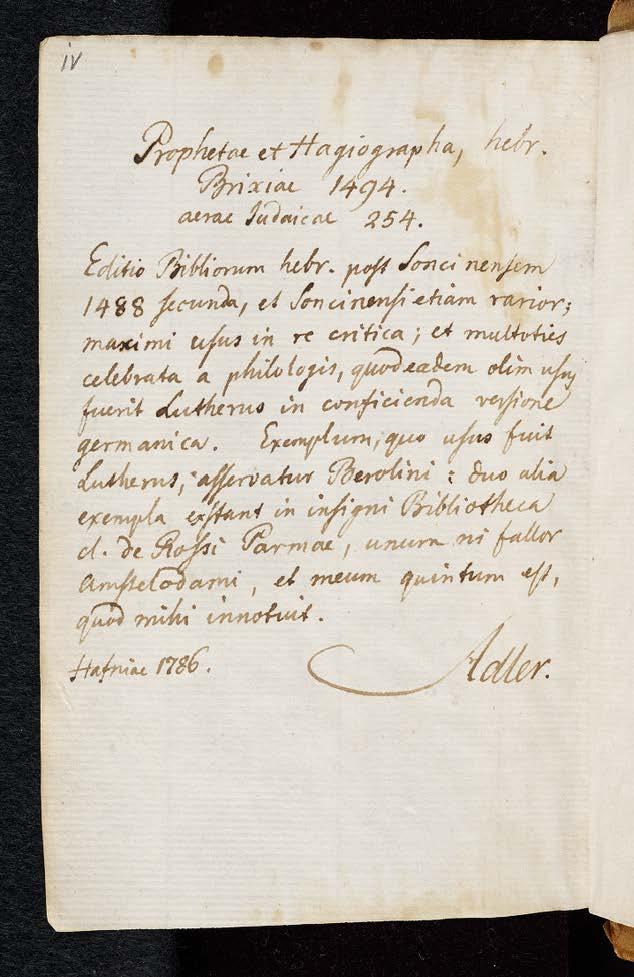 iv
Prophetae et Hagiographa, hebr.
Brixiae 1494.
aerae Iudaicae 254.
Editio Bibliorum hebr. post Soncinensem
1488 secunda, et Soncinensi etiam rarior;
maximi usus in re critica; et multoties
celebrata a philologis, quod eadem olim usus
fuerit Lutherus in conficienda versione
germanica. Exemplum, quo usus fuit
Lutherus, asservatur Berolini: duo alia
exempla exstant in insigni Bibliotheca
cl. de Rossi Parmae, unum ni fallor
Amstelodami, et meum quintum est,
quod mihi innotuit.
Hafniae 1786. Adler.